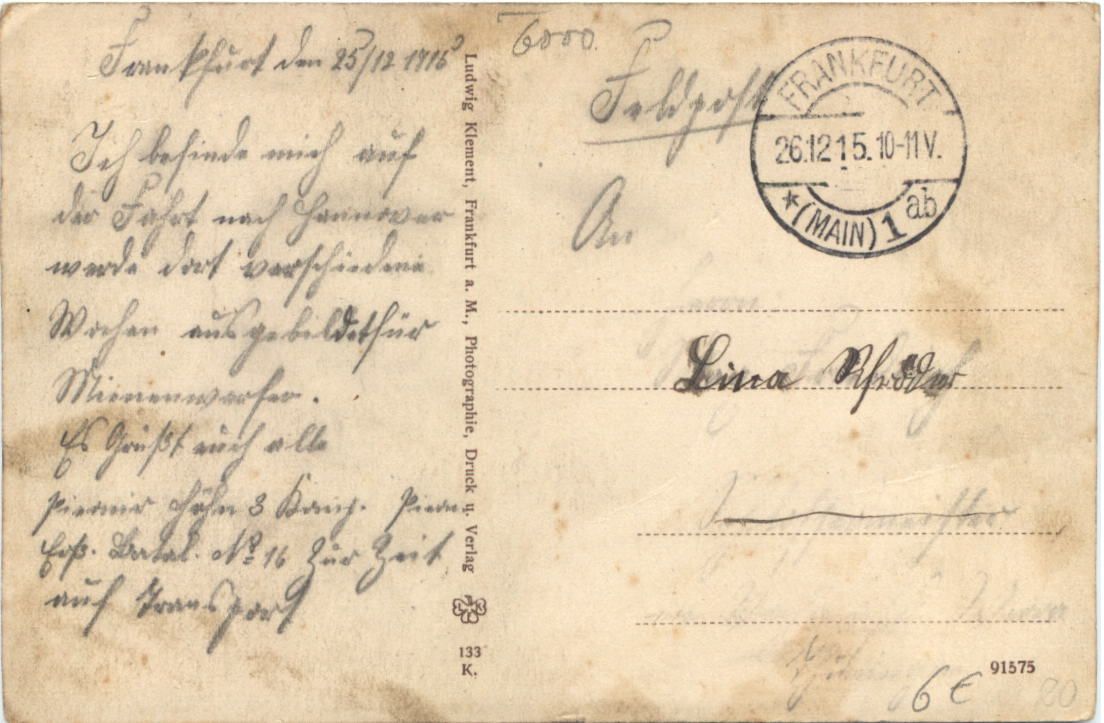 Frankfurt den 25/12 1915
Ich befinde mich auf
der Fahrt nach Hannover
werde dort verschiedene
Wochen ausgebildet für
Mienenwerfer.
Es Grüßt euch alle
Pionier Höhn 3 Komp. Pion
Ers. Batal. No 16 Zur Zeit
auf Transport
Ludwig Klement, Frankfurt a. M., Photographie, Druck u. Verlag
133
K.
6000.
Feldpost
FRANKFURT
26.12 15. 10-11 V.
* (MAIN) 1 ab
An
Herrn
Lina Schröder
91575
6 €
80